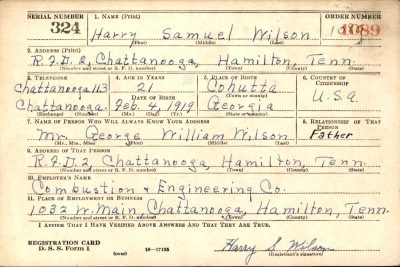 SERIAL NUMBER 1. NAME (Print) ORDER NUMBER
324 Harry Samuel Wilson 1089
(First) (Middle) (Last)
2. ADDRESS (Print)
R.F.D. 2, Chattanooga, Hamilton, Tenn.
(Number and street or R. F. D. number) (Town) (County) (State)
3. TELEPHONE 4. AGE IN YEARS 5. PLACE OF BIRTH 6. COUNTRY OF CITIZENSHIP
Chattanooga 113 21 Cohutta
DATE OF BIRTH (Town or county) U.S.A.
Chattanooga Feb. 4, 1919 Georgia
(Exchange) (Number) (Mo.) (Day) (Yr.) (State or country)
7. NAME OF PERSON WHO WILL ALWAYS KNOW YOUR ADDRESS 8. RELATIONSHIP OF THAT PERSON
Mr. George William Wilson Father
(Mr., Mrs., Miss) (First) (Middle) (Last)
9. ADDRESS OF THAT PERSON
R.F.D. 2, Chattanooga, Hamilton, Tenn.
(Number and street or R. F. D. number) (Town) (County) (State)
10. EMPLOYER'S NAME
Combustion & Engineering Co.
11. PLACE OF EMPLOYMENT OR BUSINESS
1032 W. Main, Chattanooga, Hamilton, Tenn.
(Number and street or R. F. D. number) (Town) (County) (State)
I AFFIRM THAT I HAVE VERIFIED ABOVE ANSWERS AND THAT THEY ARE TRUE.
REGISTRATION CARD
D. S. S. Form 1 (over) 16—17105 Harry S. Wilson
(Registrant's signature)